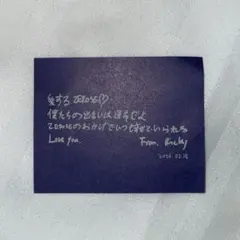 愛する ZEROSE♡
僕たちの出会いは運命だよ
ZEROSEのおかげでいつも幸せでいられる
Love you. From. Ricky